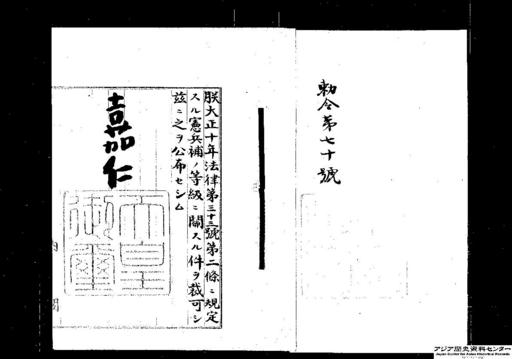 勅令第七十號
朕大正十年法律第三十三號第二條ニ規定
スル憲兵補ノ等級ニ關スル件ヲ裁可シ
茲ニ之ヲ公布セシム
嘉仁
天皇
御璽
アジア歴史資料センター
Japan Center for Asian Historical Records